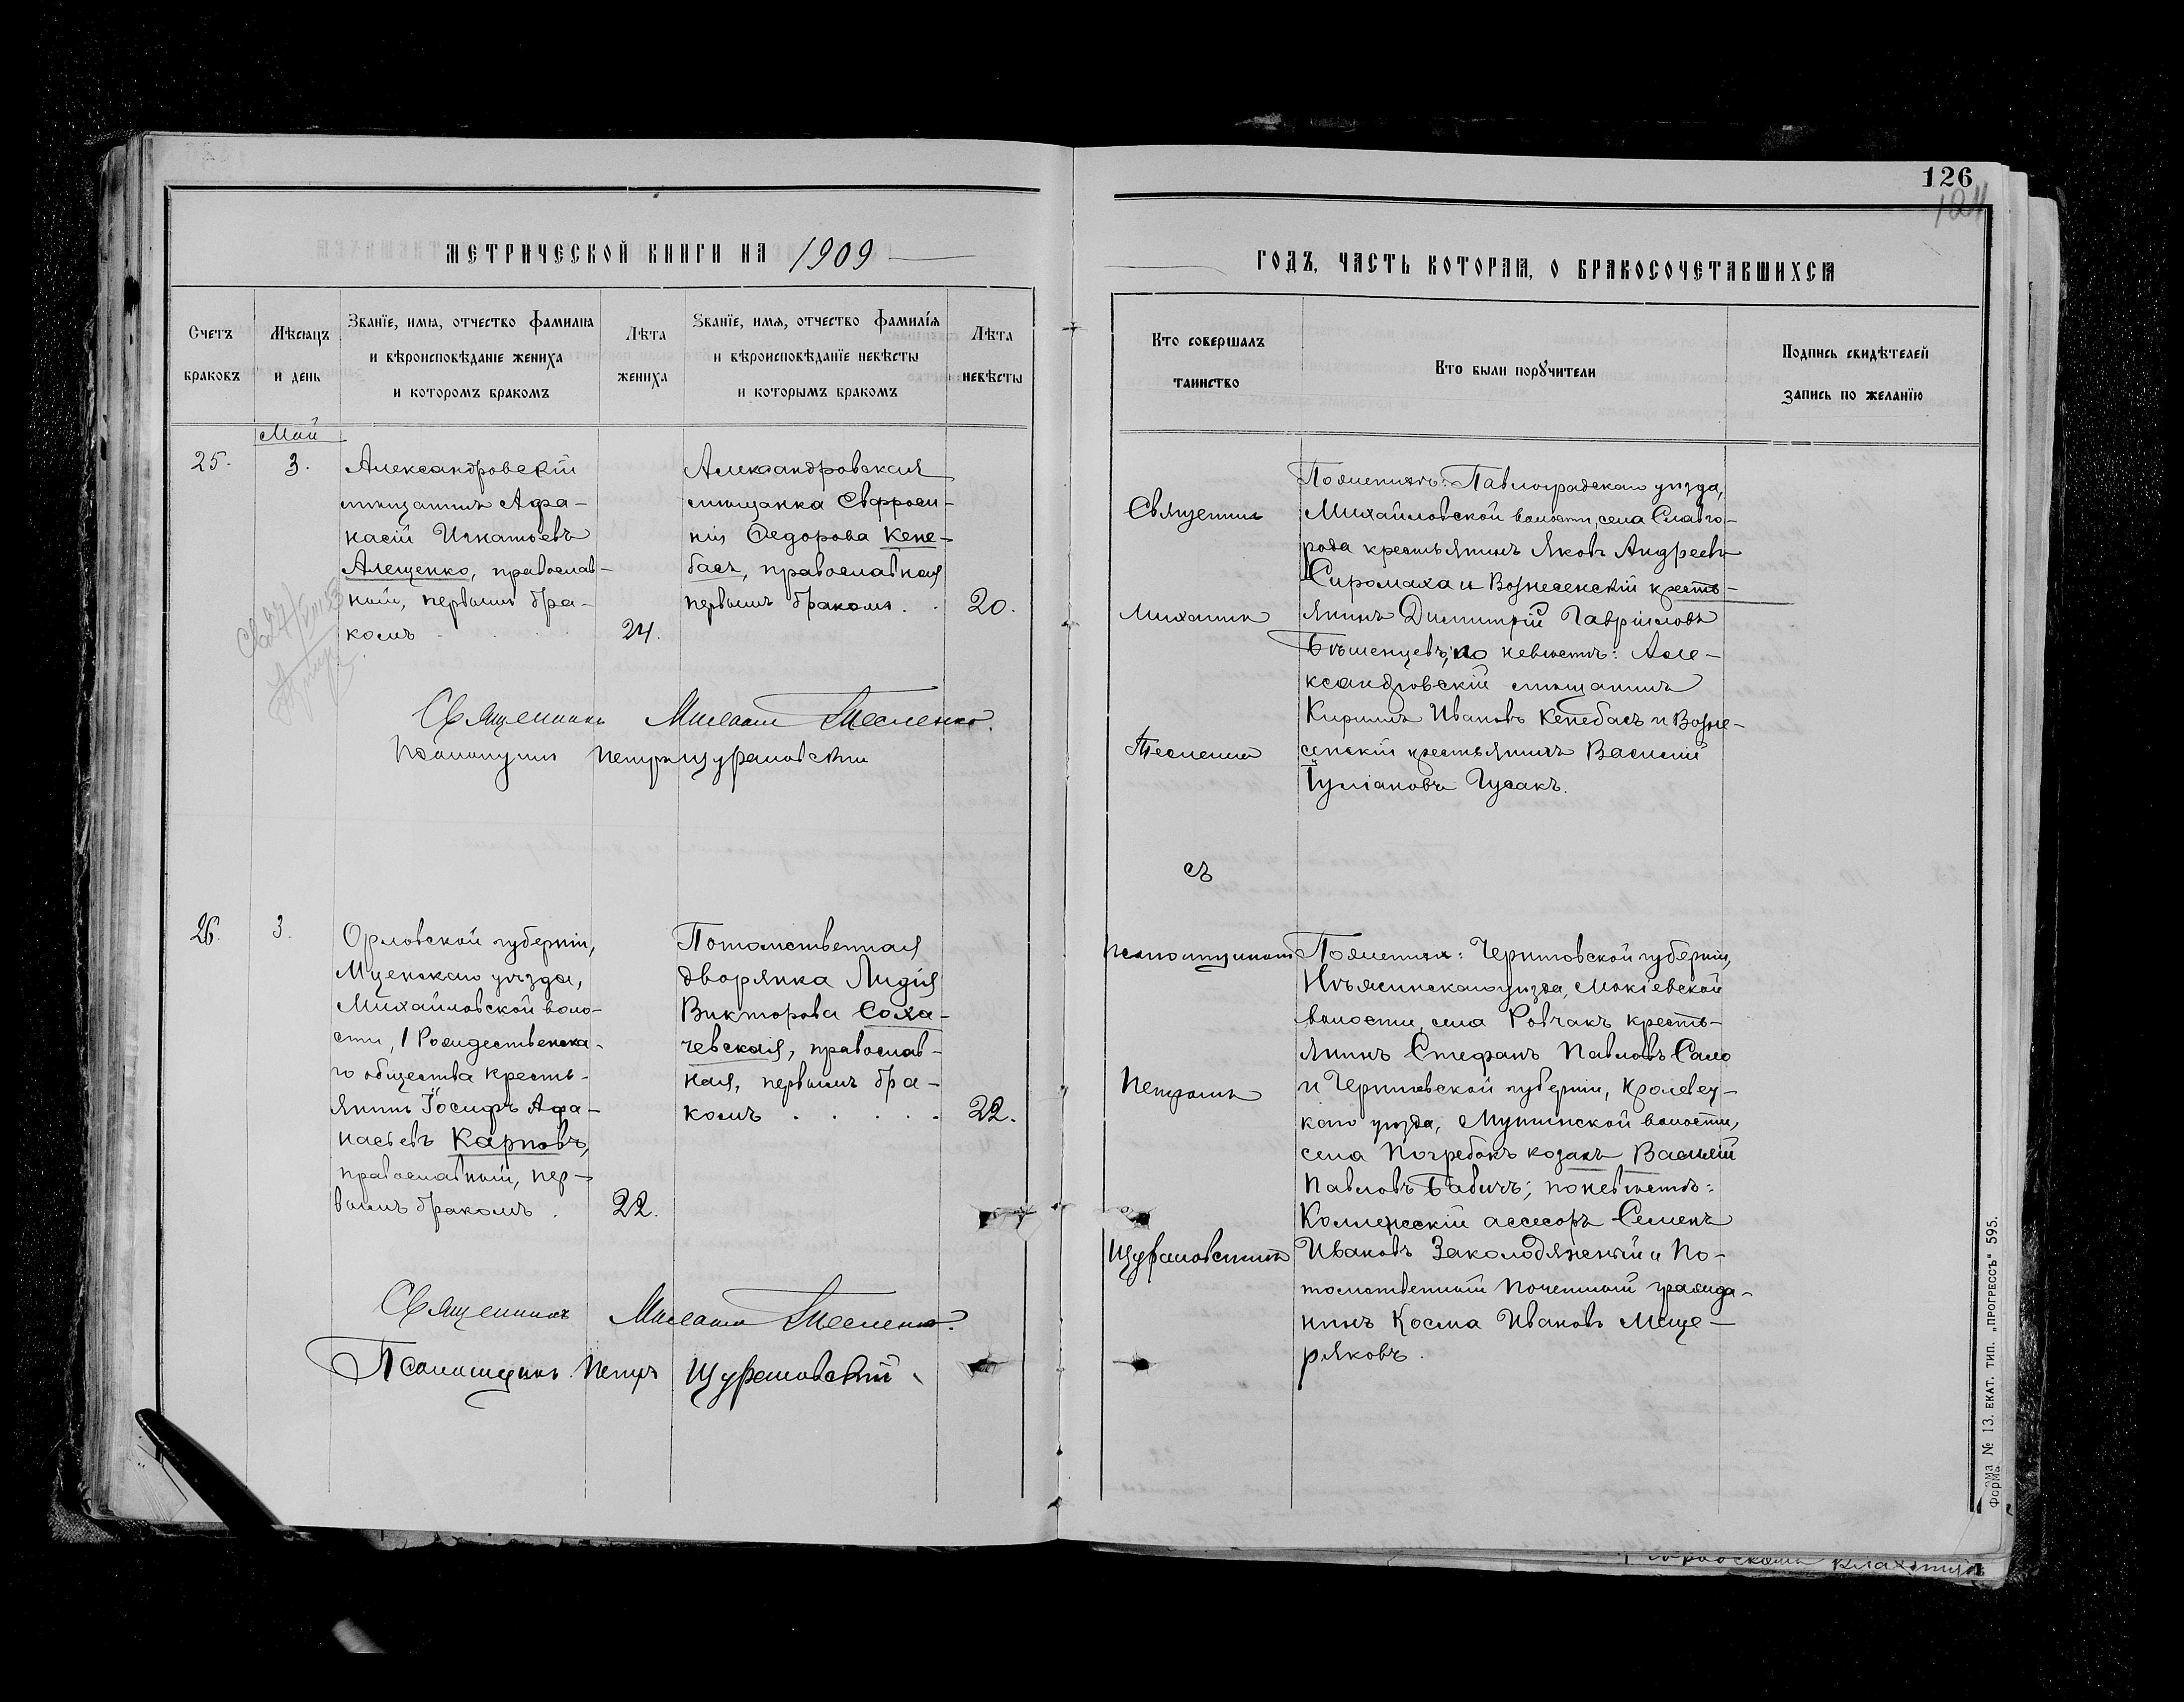 126
124
МЕТРИЧЕСКОЙ КНИГИ НА 1909
ГОДЪ, ЧАСТЬ КОТОРАЯ, О БРАКОСОЧЕТАВШИХСЯ
Счетъ
браковъ
Мѣсяцъ
и день
Званїе, имя, отчество фамилия
и вѣроисповѣданїе жениха
и котором бракомъ
Лѣта
жениха
Званїе, имя, отчество фамилїя
и вѣроисповѣданїе невѣсты
и которымъ бракомъ
Лѣта
невѣсты
Кто совершалъ
таинство
Кто были поручители
Подпись свидѣтелей
запись по желанїю
Май
25.
3.
Александровскій
мѣщанинъ Афа-
насій Игнатьевъ
Алещенко, православ-
ный, первымъ бра-
комъ
24.
Александровская
мѣщанка Евфроси-
нія Ѳедорова Кене-
басъ, православная
первымъ бракомъ.
20.
Священникъ Михаилъ Тесленко.
Псаломщикъ Петръ Щурановскій
Священникъ
Михаилъ
Тесленко
съ
Псаломщикомъ
Петромъ
Щурановскимъ
По женихѣ: Павлоградскаго уѣзда,
Михайловской волости, села Славго-
рода крестьянинъ Яковъ Андреевъ
Сиромаха и Вознесенскій кресть-
янинъ Димитрій Гавріиловъ
Бѣшенцевъ; по невѣстѣ: Але-
ксандровскій мѣщанинъ
Кириллъ Ивановъ Кенебасъ и Возне-
сенскій крестьянинъ Василій
Іуліановъ Гусакъ.
26.
3.
Орловской губерніи,
Мценскаго уѣзда,
Михайловской воло-
сти, 1 Рождественска-
го общества кресть-
янинъ Іосифъ Афа-
насьевъ Карповъ,
православный, пер-
вымъ бракомъ.
22.
Потомственная
дворянка Лидія
Викторова Соха-
чевская, православ-
ная, первымъ бра-
комъ
22.
Священникъ Михаилъ Тесленко.
Псаломщикъ Петръ Щурановскій
По женихѣ: Черниговской губерніи,
Нѣжинскаго уѣзда, Мокіевской
волости, села Ровчакъ кресть-
янинъ Стефанъ Павловъ Сало
и Черниговской губерніи, Кролевец-
каго уѣзда, Мутинской волости,
села Погребокъ козакъ Василій
Павловъ Бабичъ; по невѣстѣ:
Коллежскій ассесоръ Семенъ
Ивановъ Заколодяжный и По-
томственный почетный гражда-
нинъ Косма Ивановъ Меще-
ряковъ.
Форма № 13. ЕКАТ. ТИП. „ПРОГРЕССЪ" 595.